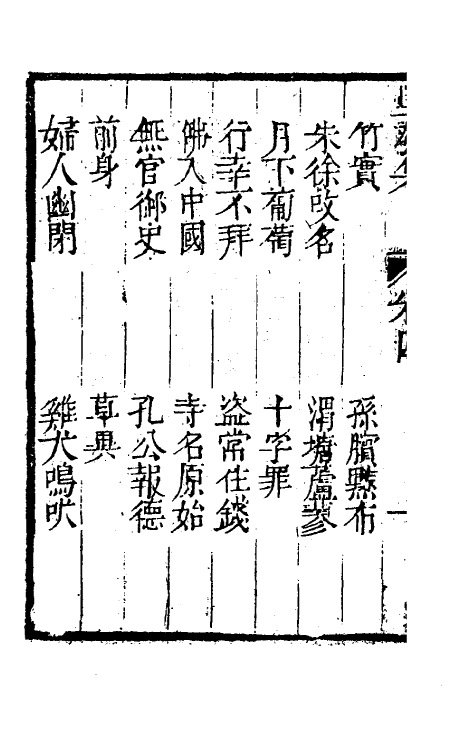 竹實　孫臏黥布
朱徐改名　渭塘蘆蓼
月下葡萄　十字罪
行幸不拜　盜常住錢
佛入中國　寺名原始
無官御史　孔公報德
前身　草異
婦人幽閉　雞犬鳴吠